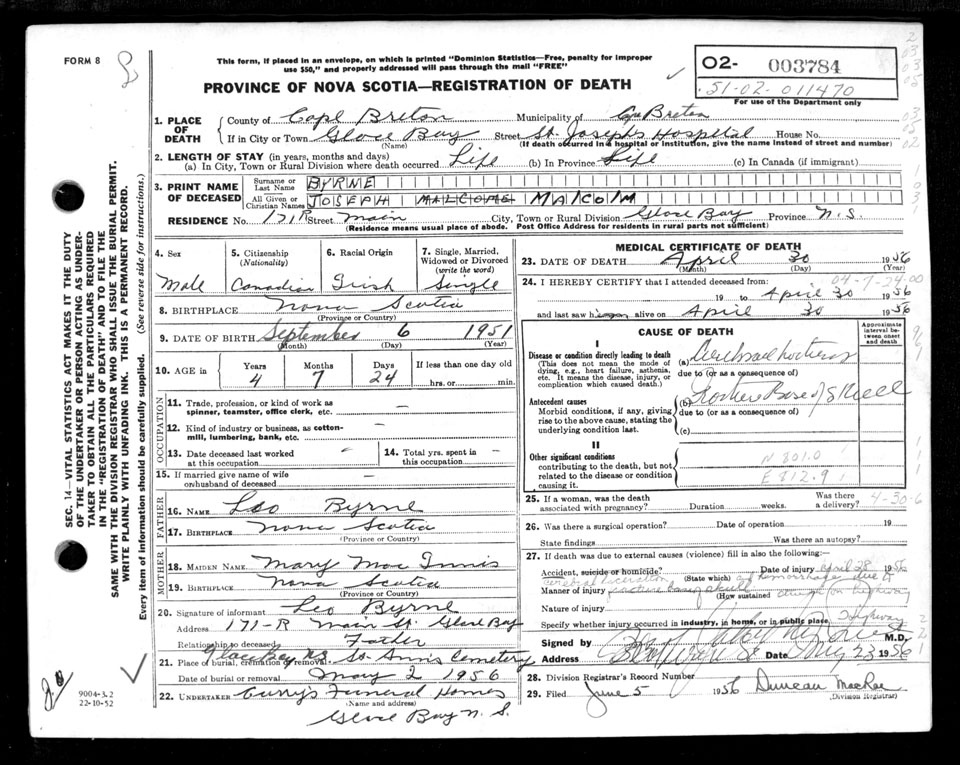 FORM 8
This form, if placed in an envelope, on which is printed "Dominion Statistics—Free, penalty for improper
use $50," and properly addressed will pass through the mail "FREE"
PROVINCE OF NOVA SCOTIA—REGISTRATION OF DEATH
O2- 003784
51-02-011470
For use of the Department only
1. PLACE OF DEATH
County of Cape Breton Municipality of Cape Breton
If in City or Town Glace Bay Street St. Josephs Hospital House No.
(Name) (If death occurred in a hospital or institution, give the name instead of street and number)
2. LENGTH OF STAY (in years, months and days)
(a) In City, Town or Rural Division where death occurred Life (b) In Province Life (c) In Canada (if immigrant)
3. PRINT NAME OF DECEASED
Surname or Last Name BYRNE
All Given or Christian Names JOSEPH MALCOLM
RESIDENCE No. 171R Street Main City, Town or Rural Division Glace Bay Province N.S.
(Residence means usual place of abode. Post Office Address for residents in rural parts not sufficient)
4. Sex
Male
5. Citizenship (Nationality)
Canadian
6. Racial Origin
Irish
7. Single, Married, Widowed or Divorced (write the word)
Single
8. BIRTHPLACE Nova Scotia
(Province or Country)
9. DATE OF BIRTH September 6 1951
(Month) (Day) (Year)
10. AGE in Years Months Days If less than one day
4 7 24 hrs. or min.
OCCUPATION
11. Trade, profession, or kind of work as spinner, teamster, office clerk, etc. —
12. Kind of industry or business, as cotton-mill, lumbering, bank, etc. —
13. Date deceased last worked at this occupation —
14. Total yrs. spent in this occupation —
15. If married give name of wife or husband of deceased —
FATHER
16. NAME Leo Byrne
17. BIRTHPLACE Nova Scotia
(Province or Country)
MOTHER
18. MAIDEN NAME Mary Mac Innis
19. BIRTHPLACE Nova Scotia
(Province or Country)
20. Signature of informant Leo Byrne
Address 171-R Main St. Glace Bay
Relationship to deceased Father
21. Place of burial, cremation or removal Glace Bay NS St. Ann's Cemetery
Date of burial or removal May 2 1956
22. UNDERTAKER Curry's Funeral Homes
(Name and address)
Glace Bay N.S.
MEDICAL CERTIFICATE OF DEATH
23. DATE OF DEATH April 30 1956
(Month) (Day) (Year)
04-7-24-00
24. I HEREBY CERTIFY that I attended deceased from:
19 to April 30 1956
and last saw h alive on April 30 1956
CAUSE OF DEATH
Approximate interval between onset and death
I
Disease or condition directly leading to death
(This does not mean the mode of dying, e.g., heart failure, asthenia, etc. It means the disease, injury, or complication which caused death.)
(a)
due to (or as a consequence of)
Antecedent causes
Morbid conditions, if any, giving rise to the above cause, stating the underlying condition last.
(b) Base of Skull
due to (or as a consequence of)
(c)
II
Other significant conditions
contributing to the death, but not related to the disease or condition causing it.
N 801.0
E 812.9
25. If a woman, was the death associated with pregnancy? Duration weeks. Was there a delivery? 4-30-6
26. Was there a surgical operation? Date of operation 19
State findings Was there an autopsy?
27. If death was due to external causes (violence) fill in also the following:—
Accident, suicide or homicide? Date of injury April 28 1956
cerebral laceration (State which) hemorrhage due to
Manner of injury
(How sustained) on highway
Nature of injury
Specify whether injury occurred in industry, in home, or in public place Highway
Signed by M.D.
Address Date May 23 1956
28. Division Registrar's Record Number
29. Filed June 5 1956 Duncan MacRae
(Division Registrar)
SEC. 14—VITAL STATISTICS ACT MAKES IT THE DUTY
OF THE UNDERTAKER OR PERSON ACTING AS UNDER-
TAKER TO OBTAIN ALL THE PARTICULARS REQUIRED
IN THE "REGISTRATION OF DEATH" AND TO FILE THE
SAME WITH THE DIVISION REGISTRAR WHO SHALL ISSUE THE BURIAL PERMIT.
WRITE PLAINLY WITH UNFADING INK. THIS IS A PERMANENT RECORD.
Every item of information should be carefully supplied. (See reverse side for instructions.)
9004-3.2
22-10-52